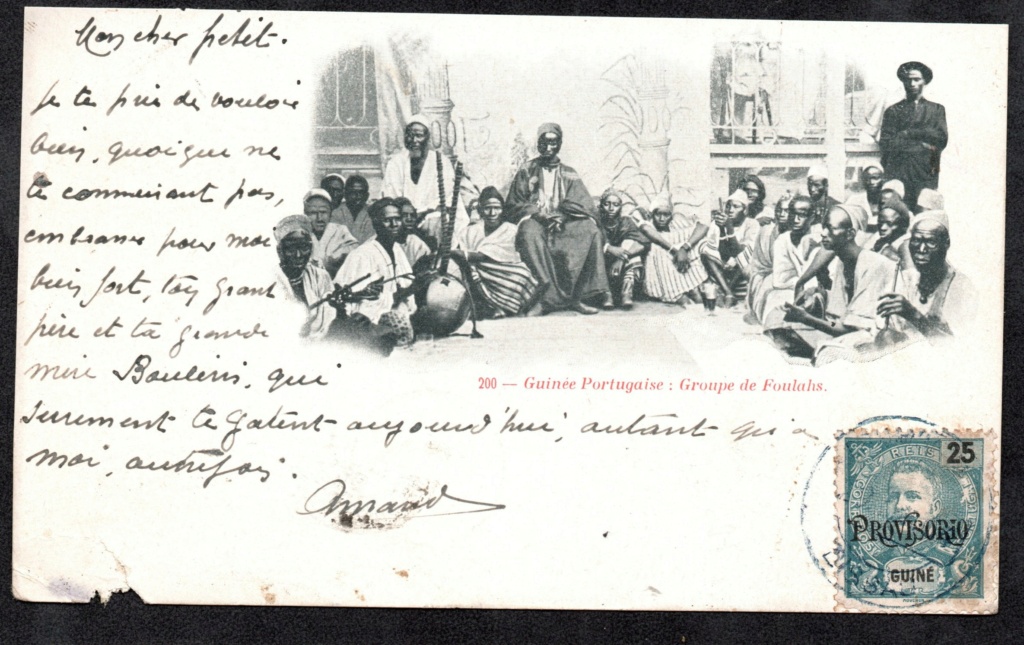 Mon cher petit.
Je te prie de vouloir
bien, quoique ne
te connaissant pas,
embrasser pour moi
bien fort, ton grand
père et ta grande
mère, qui
surement te gatent aujourd'hui, autant qu'a
moi, autrefois.
200 — Guinée Portugaise : Groupe de Foulahs.
25
REIS
PROVISORIO
GUINÉ